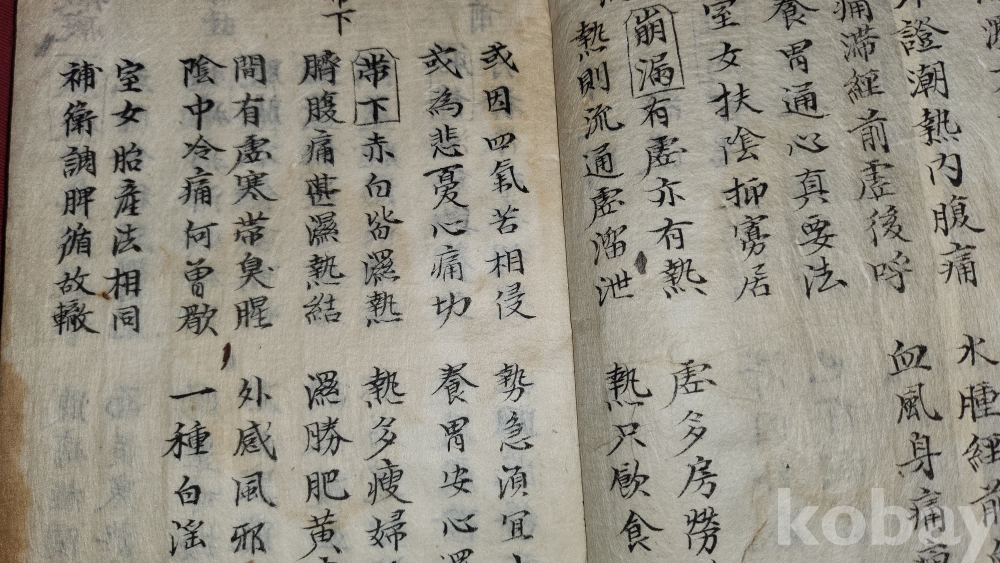 證潮熱內腹痛 水腫經前
痛滯經前虛後呼 血風身痛
養胃通心真要法
室女扶陰抑寡居
崩漏有虛亦有熱 虛多房勞
熱則流通虛溜泄 熱只飲食
下
或因四氣苦相侵 勢急須宜
或為悲憂心痛切 養胃安心
帶下赤白皆濕熱 熱多瘦婦
臍腹痛甚濕熱結 濕勝肥黃
間有虛寒帶臭腥 外感風邪
陰中冷痛何曾歇 一種白淫
室女胎產法相同
補衛調脾循故轍
kobay